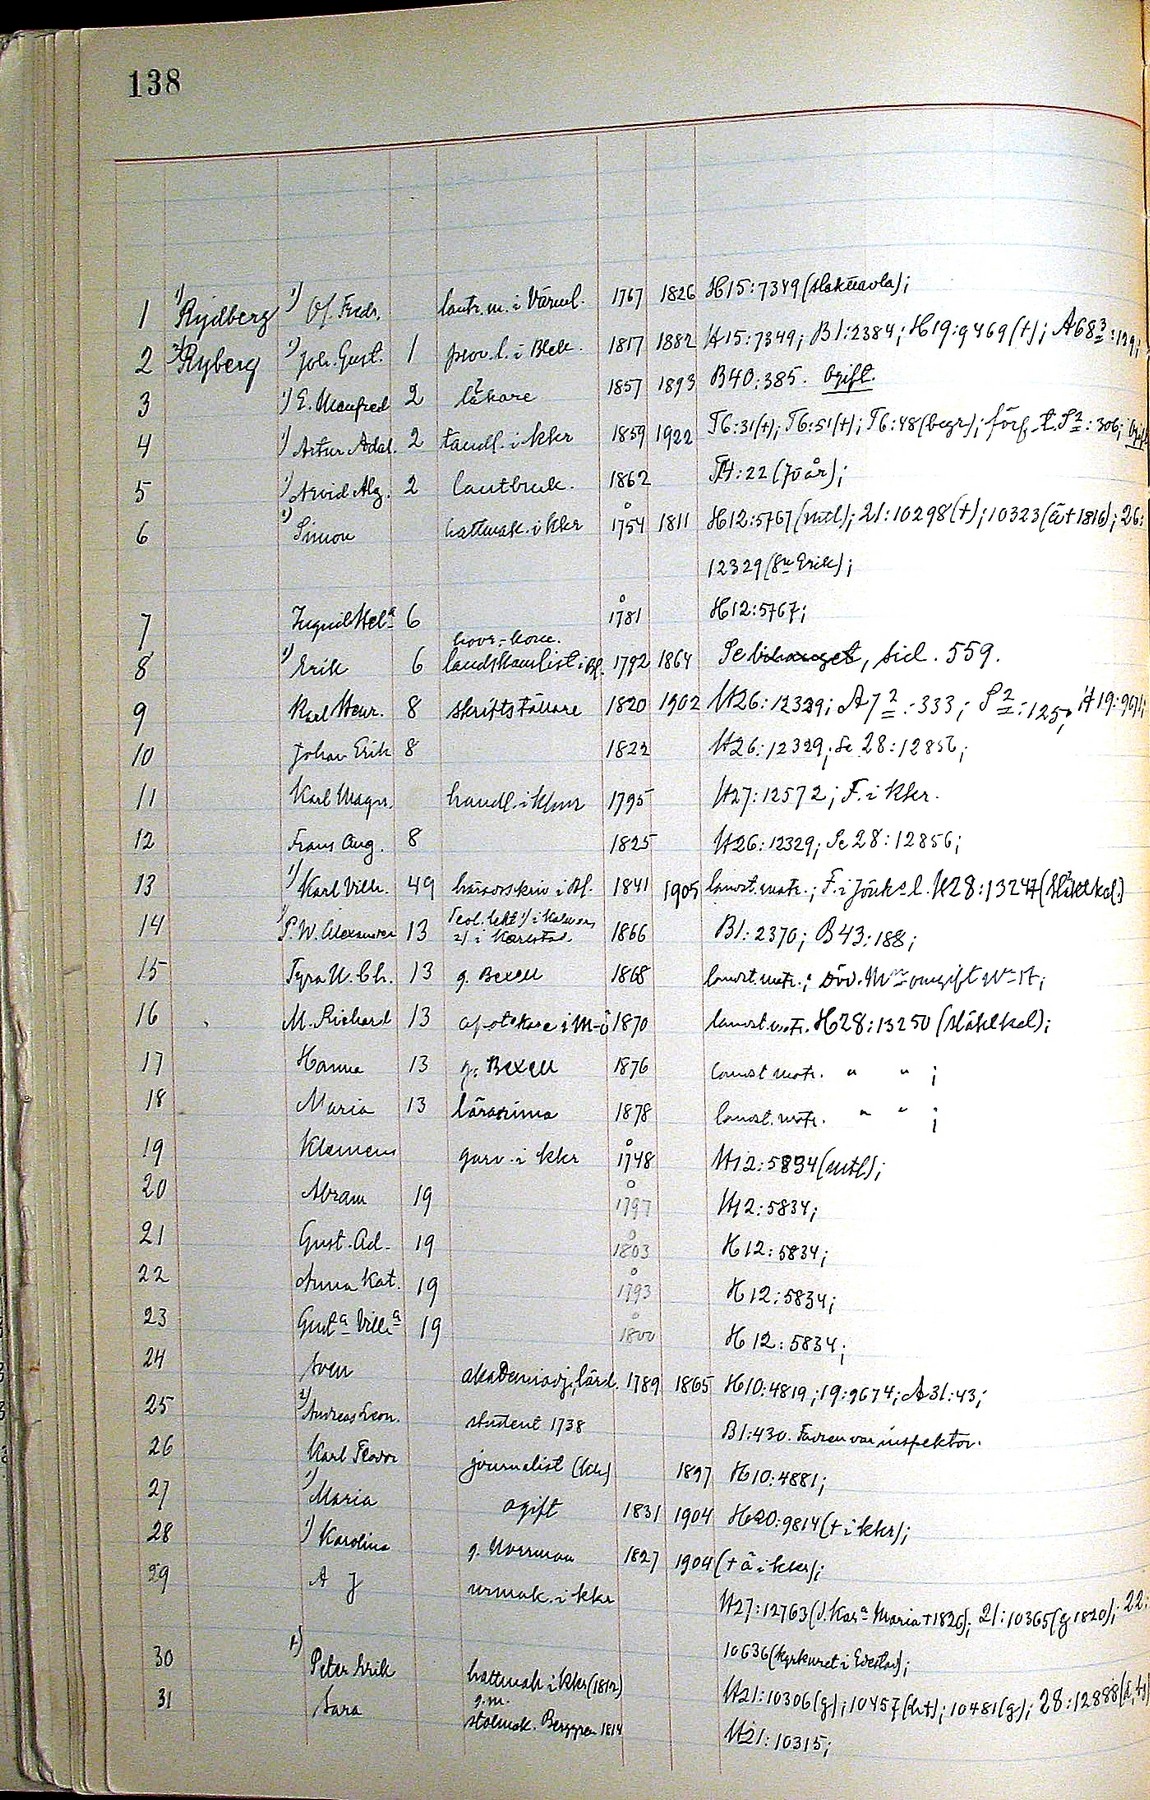 138
1 1) Rydberg 1) Ol. Fredr. lantm. i Värml. 1767 1826 H15:7349 (släkttavla);
2 2) Ryberg 1) Joh. Gust. 1 prov.l. i Blek. 1817 1882 H15:7349; B1:2384; H19:9469 (†); A68 3:129;
3 1) E. Manfred 2 läkare 1857 1893 B40:385. Ogift.
4 1) Artur Adal. 2 tandl. i kkr 1859 1922 T6:31(†); T6:51(†); T6:48(begr); förf. t. S2:306;
5 1) Arvid Alg. 2 lantbruk. 1862 T4:22 (70 år);
6 1) Simon hattmak. i kkr 1754 1811 H12:5767 (mtl); 21:10298(†); 10323 (ä † 1816); 26:
12329 (sn Erik);
7 Ingrid Hela 6 1781 H12:5767;
8 1) Erik 6 hovr.-kom. landskanslist i Bl. 1792 1864 Se bihanget, sid. 559.
9 Karl Henr. 8 skriftställare 1820 1902 H26:12329; A7 2:333; S2:125; H19:9671;
10 Johan Erik 8 1822 H26:12329; Se 28:12856;
11 Karl Magn. handl. i khmr 1795 H27:12572; F. i kkr.
12 Frans Aug. 8 1825 H26:12329; Se 28:12856;
13 1) Karl Vilh. 49 häradsskriv i Bl. 1841 1905 landst. matr.; F. i Jönk. l. H28:13247 (släktkal.)
14 1) P. W. Alexander 13 Teol. lekt 1) i Kalmar, 2) i Karlstad. 1866 B1:2370; B43:188;
15 Tyra U. Ch. 13 g. Bexell 1868 landst. matr.;
16 M. Richard 13 apotekare i M-ö 1870 landst. matr. H28:13250 (släktkal);
17 Hanna 13 g. Bexell 1876 landst matr. " " ;
18 Maria 13 lärarinna 1878 landst. matr. " " ;
19 Klemens garv. i kkr 1748 H12:5834 (mtl);
20 Abram 19 1797 H12:5834;
21 Gust. Ad. 19 1803 H12:5834;
22 Anna Kat. 19 1793 H12:5834;
23 Gusta Villa 19 1800 H12:5834;
24 Sven akademiadj, lärd. 1789 1865 H10:4819; 19:9674; A31:43;
25 2) Andreas Sven. student 1738 B1:430. Fadren var inspektor.
26 Karl Teodor journalist (kkr) 1897 H10:4881;
27 1) Maria ogift 1831 1904 H20:9814 († i kkr);
28 1) Karolina g. Norrman 1827 1904 († ä i kkr);
29 A J urmak. i kkr H27:12763 (d. Kara Maria † 1826); 21:10365 (g 1820); 22:
10636 (kyrkuret i Edestad);
30 1) Peter Erik hattmak i kkr (1812) H21:10306 (g); 10457 (); 10481 (g); 28:12888
31 Sara g.m. stolmak. Berggren 1814 H21:10315;